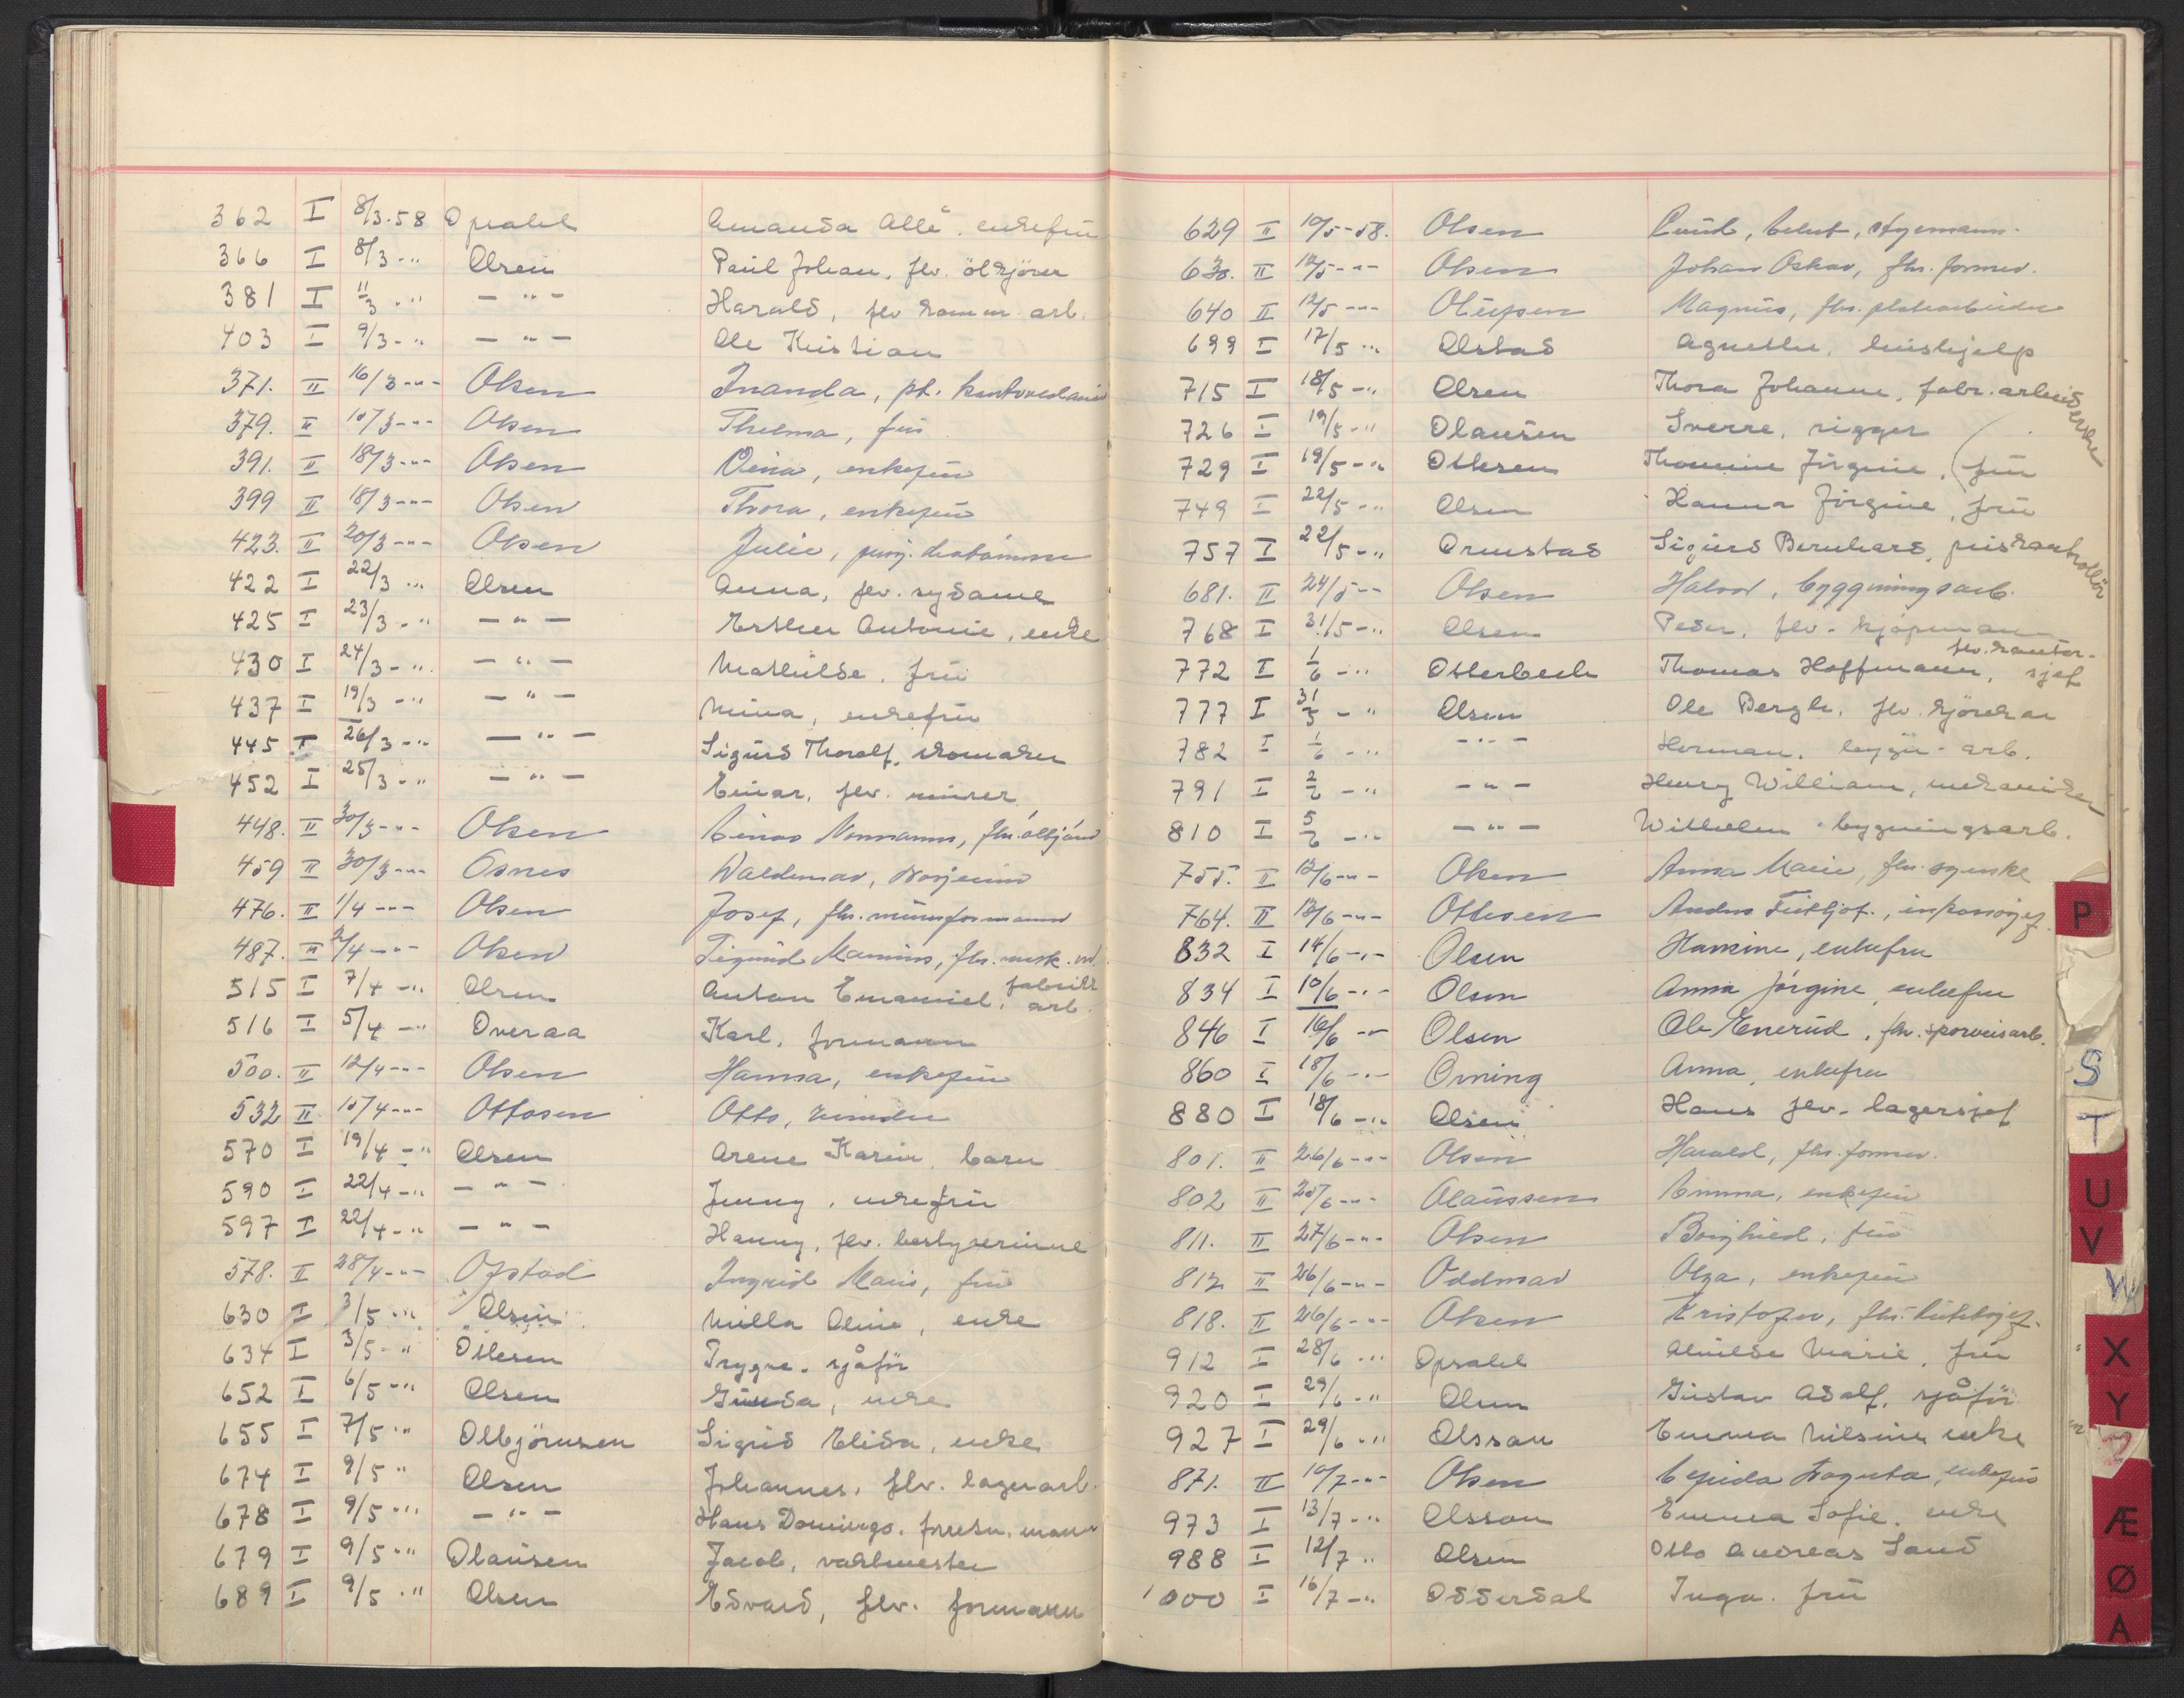 362 I 8/3.58 Opsahl Amanda Allé. enkefru
366 I 8/3 - " Olsen Paul Johan, flv. ölkjörer
381 I 11/3 - " - " - Harald, flv komm. arb.
403 I 9/3 - " - " - Ole Kristian
371. II 16/3 - " - Olsen Inanda, pt.
379. II 15/3 - " - Olsen Thelma, fru
391. II 18/3 - " - Olsen enkefru
399 II 18/3 - " - Olsen Thora, enkefru
423. II 20/3 - " - Olsen Julie,
422 I 22/3 - " Olsen Anna, flv. sydame
425 I 23/3 - " - " - Esther Antonie, enke
430 I 24/3 - " - " - Mathilde, fru
437 I 19/3 - " - " - Mina, enkefru
445 I 26/3 - " - " - Sigurd Thoralf, skomaker
452 I 25/3 - " - " - Einar, flv. murer
448. II 30/3 - " - Olsen Einar Normann, fhv. ölkjörer
459 II 30/3 - " - Osnes Waldemar,
476. II 1/4 - " - Olsen Josef, fhv. murerformann
487. II 2/4 - " - Olsen Sigurd fhv. mask.
515 I 7/4 - " Olsen Anton Emanuel, fabrikk arb.
516 I 5/4 - " Overaa Karl, formann
500. II 12/4 - " - Olsen Hanna, enkefru
532 II 15/4 - " - Ottosen Otto,
570 I 19/4 - " Olsen Arene Karin, barn
590 I 22/4 - " - " - Jenny, enkefru
597 I 22/4 - " - " - Hanny, flv. bestyrerinne
578. II 28/4 - " - Opstad Ingrid Marie, fru
630 I 3/5 - " Olsen Milla Oline, enke
634 I 3/5 - " Ottesen Trygve. sjåför
652 I 6/5 - " Olsen Gunda, enke
655 I 7/5 - " Olbjörnsen Sigrid Elida, enke
674 I 9/5 " Olsen Johannes, flv. lagerarb.
678 I 9/5 - " - " - Hans Domingo. forretn. mann
679 I 9/5 - " Olausen Jacob, vaktmester
689 I 9/5 - " Olsen Edvard, flv. formann
629 II 10/5 - 58. Olsen styrmann.
630. II 12/5 - " - Olsen Johan Oskar, fhv. former.
640 II 12/5 - " - Olufsen Magnus, fhv. platearbeider
699 I 17/5 - " Olstad Agnethe, hushjelp
715 I 18/5 - " Olsen Thora Johanne, fabr. arbeiderske
726 I 19/5 - " Olausen Sverre, rigger
729 I 19/5 - " Ottesen Thomine Jörgine, fru
749 I 22/5 - " Olsen Hanna Jörgine, fru
757 I 22/5 - " Ormstad Sigurd Bernhard, priskontrollör
681. II 24/5 - " Olsen Halvor, byggningsarb.
768 I 31/5 - " Olsen Peder, flv. kjöpmann
772 I 1/6 - " Otterbech Thomas Hoffmann, flv. kontorsjef
777 I 31/5 - " Olsen Ole Bergh. flv. kjörekar
782 I 1/6 - " - " - Herman. bygn. arb.
791 I 2/6 - " - " - Henry William, mekaniker
810 I 5/6 - " - " - Wilhelm bygningsarb.
755. II 12/6 - " - Olsen Anna Marie, fhv. syerske
764. II 13/6 - " - Ottesen Anders Fritjof.,
832 I 14/6 - " - Olsen Hansine, enkefru
834 I 10/6 - " - Olsen Anna Jörgine enkefru
846 I 16/6 - " Olsen Ole Enerud, fhv. sporveisarb.
860 I 18/6 - " - Orning Anna, enkefru
880 I 18/6 - " Olsen Hans flv. lagersjef
801. II 26/6 - " - Olsen Harald, fhv. former.
802 II 25/6 - " - Olaussen Emma, enkefru
811. II 27/6 - " - Olsen Borghild, fru
812 II 26/6 - " - Oddmar Olga, enkefru
818. II 26/6 - " - Olsen Kristofer, fhv.
912 I 28/6 - " Opsahl Alvilde Marie, fru
920 I 29/6 - " Olsen Gustav Adolf, sjåför
927 I 29/6 - " Olsson Emma Nilsine enke
871. II 10/7 - " - Olsen Dagreta, enkefru
973 I 13/7 - " Olsson Emma Sofie. enke
988 I 12/7 " Olsen Otto Andreas Sand
1000 I 16/7 - " Odderdal Inga. fru
P
S
T
U
V
W
X
Y
Z
Æ
Ø
A